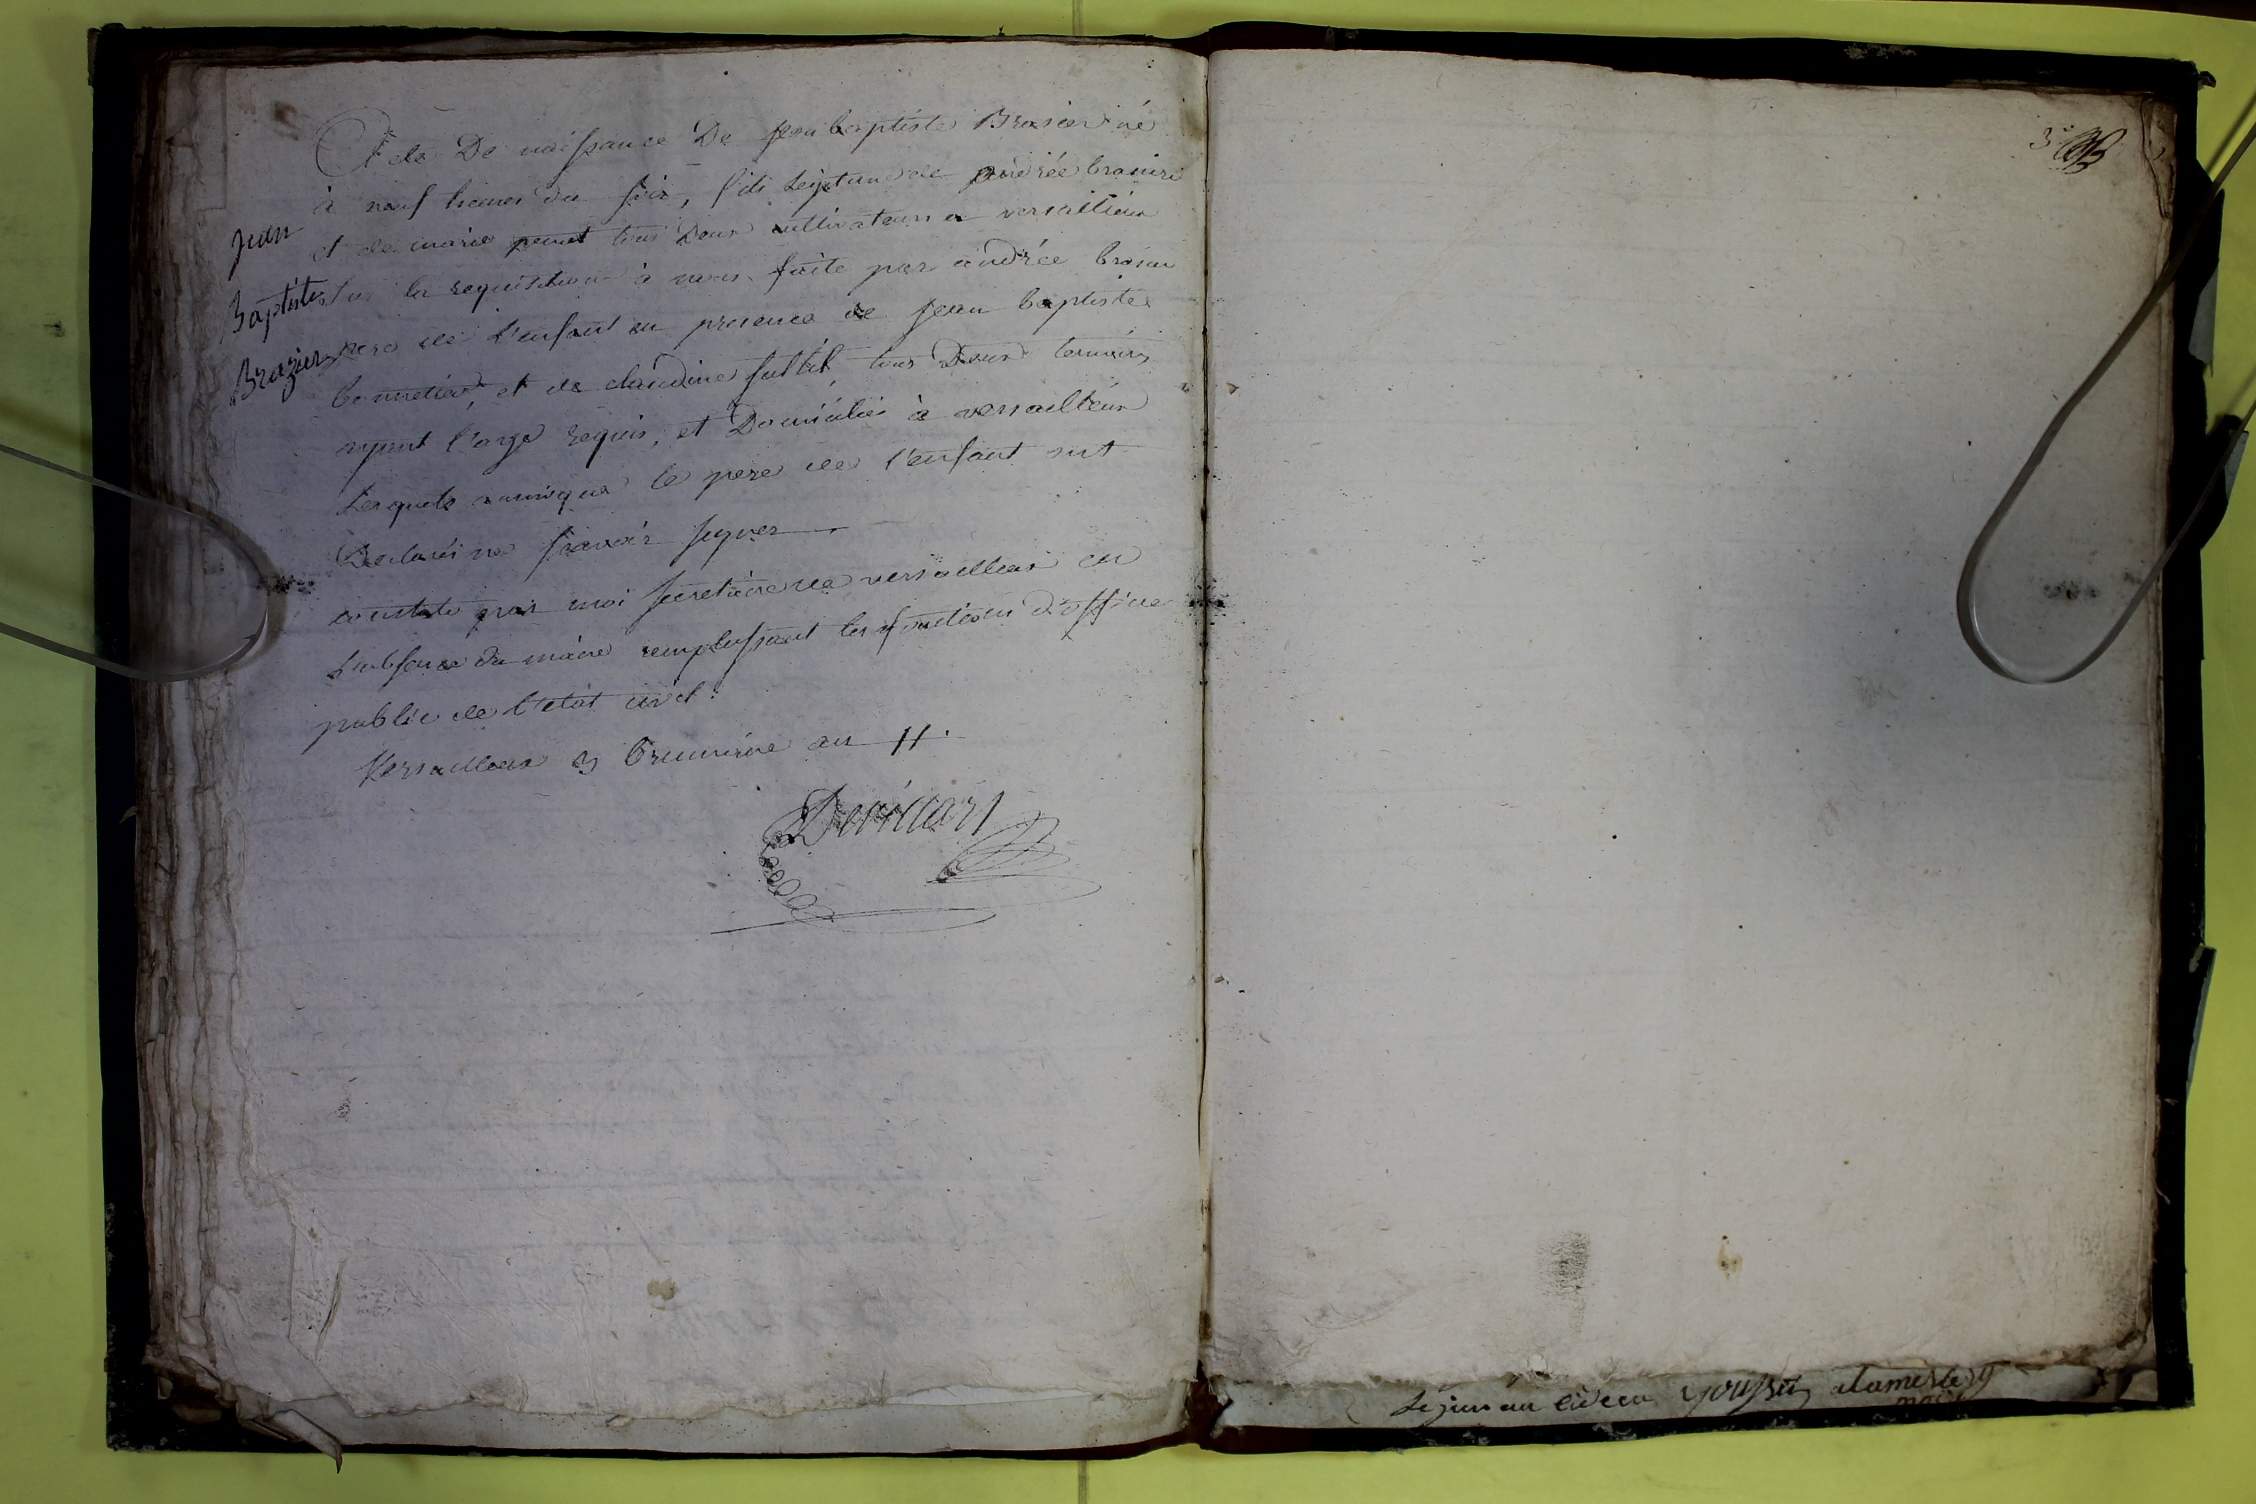 Acte De naissance De jean baptiste Brasier né
à neuf heures du soir, fils legitime de andrée brasier
et de marie penet tous Deux cultivateurs a versailleux
Sur la requisition à nous faite par andrée brasier
pere de l'enfant en presence de jean baptiste
bonnetier, et de claudine tous Deux temoins
ayant l'age requis, et Domiciliés à versailleux
Lesquels ainsique le pere de l'enfant ont
Declaré ne scavoir signer
constaté par moi secretaire de versailleux en
L'absence du maire remplissant les fonctions d'officie
public de l'etat civil.
Versailleux 3 brumaire an 11.
Jean
Baptiste
Brazier
3e